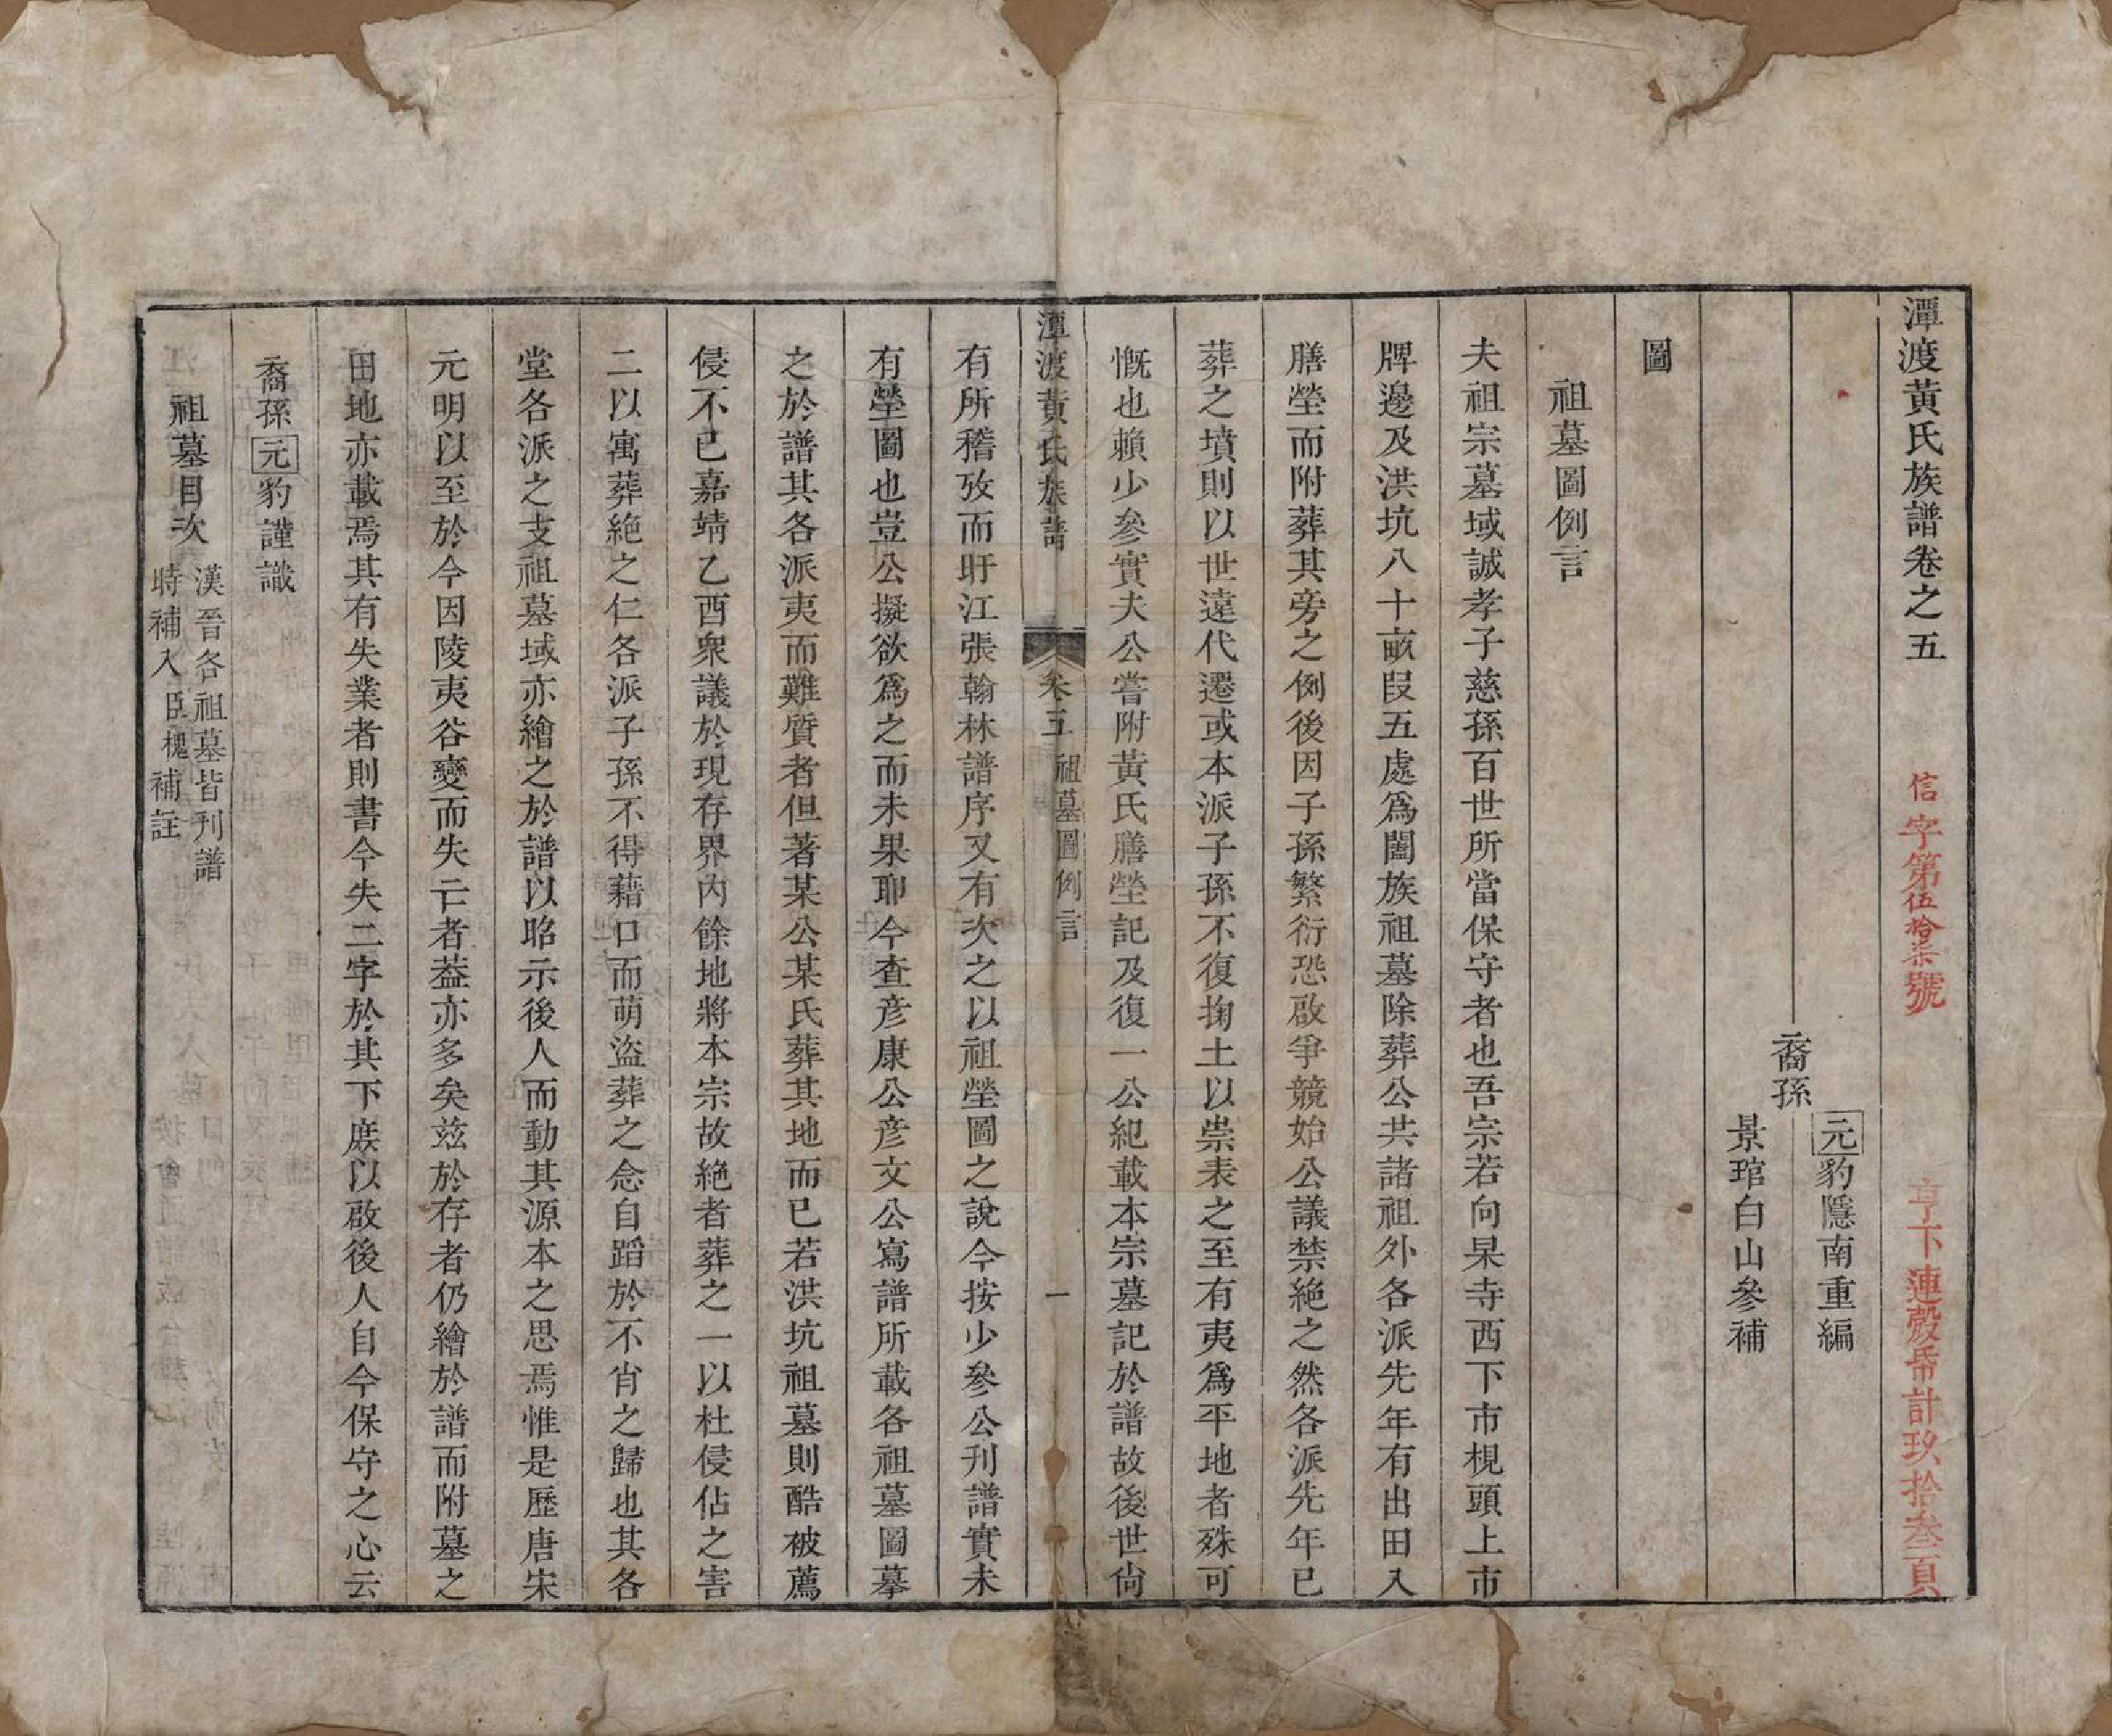 潭渡黃氏族譜卷之五
信字第伍拾柒號
亨下連殼帋計玖拾叁頁
裔孫
元豹隱南重編
景琯白山參補
圖
祖墓圖例言
夫祖宗墓域誠孝子慈孫百世所當保守者也吾宗若向杲寺西下市梘頭上市
牌邊及洪坑八十畝段五處爲闔族祖墓除葬公共諸祖外各派先年有出田入
膳塋而附葬其旁之例後因子孫繁衍恐啟爭競始公議禁絕之然各派先年已
葬之墳則以世遠代遷或本派子孫不復掬土以祟表之至有夷爲平地者殊可
慨也賴少參實夫公嘗附黃氏膳塋記及復一公紀載本宗墓記於譜故後世尙
潭渡黃氏族譜
卷五
祖墓圖例言
一
有所稽攷而旴江張翰林譜序又有次之以祖塋圖之說今按少參公刊譜實未
有塋圖也豈公擬欲爲之而未果耶今查彦康公彦文公寫譜所載各祖墓圖摹
之於譜其各派夷而難質者但著某公某氏葬其地而已若洪坑祖墓則酷被薦
侵不已嘉靖乙酉衆議於現存界內餘地將本宗故絶者葬之一以杜侵佔之害
二以寓葬絶之仁各派子孫不得藉口而萌盜葬之念自蹈於不肖之歸也其各
堂各派之支祖墓域亦繪之於譜以昭示後人而動其源本之思焉惟是歷唐宋
元明以至於今因陵夷谷變而失亡者葢亦多矣茲於存者仍繪於譜而附墓之
田地亦載焉其有失業者則書今失二字於其下庶以啟後人自今保守之心云
裔孫元豹謹識
祖墓目次
漢晉各祖墓皆刊譜
時補入臣槐補註